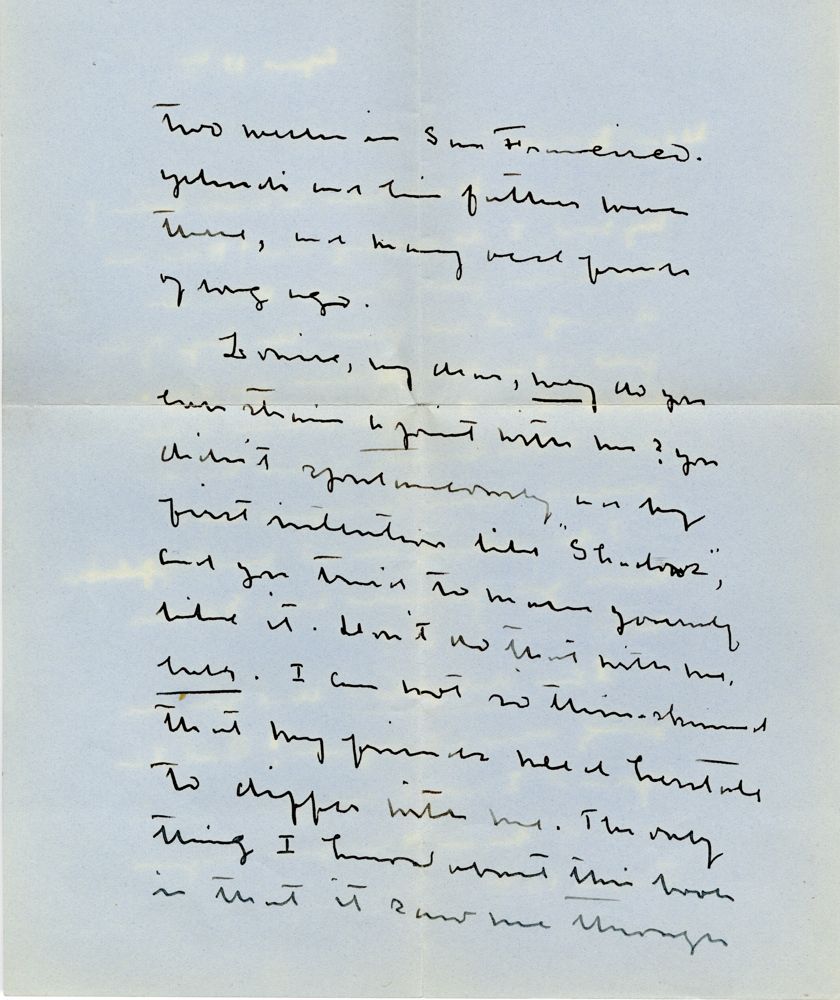 two weeks in San Francisco.
Yehudi and his father were
there, and many friends
of long ago.
my dear, why do you
ever strain a point with me? You
didn't spontaneously and by
first intention like "Shadows",
and you tried to make yourself
like it. Don't do that with me,
I am not so thin-skinned
that my friends need hesitate
to differ with me. The only
thing I know about this book
is that it saw me through